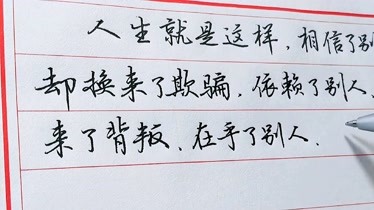 人生就是这样，相信了别
却换来了欺骗，依赖了别人、
来了背叛、在乎了别人、